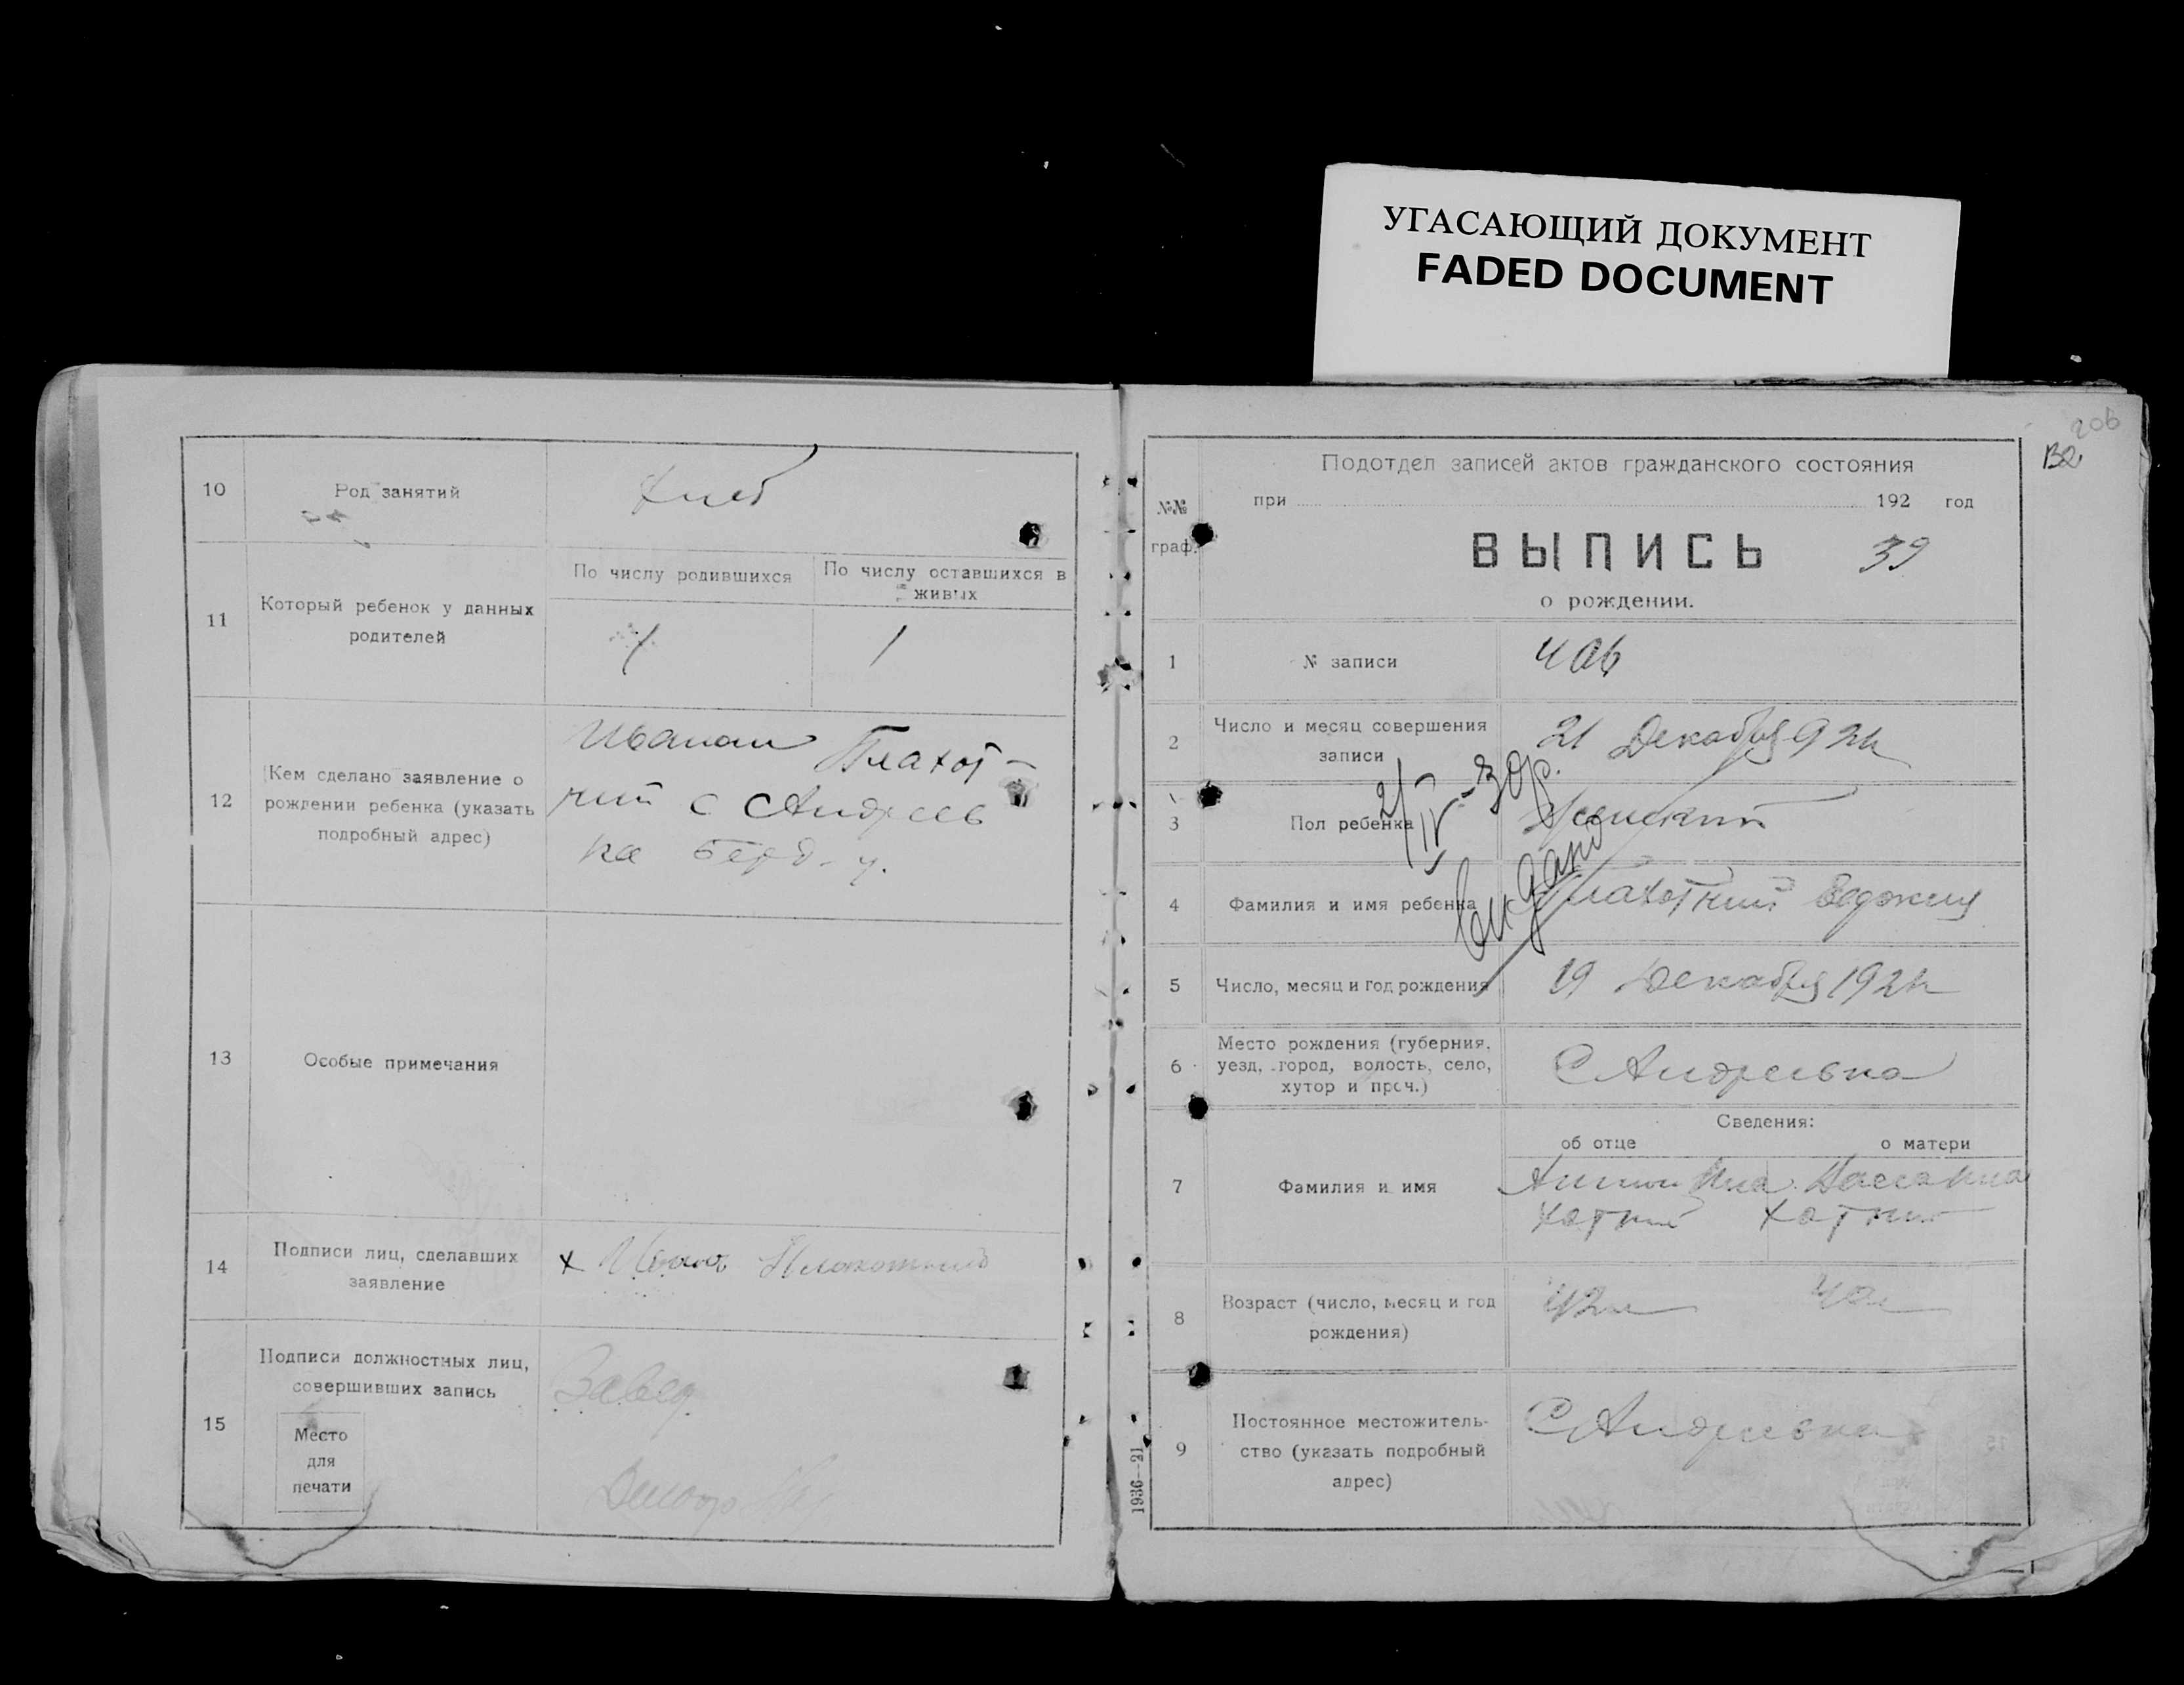 УГАСАЮЩИЙ ДОКУМЕНТ
FADED DOCUMENT
10
Род занятий
11
Который ребенок у данных
родителей
По числу родившихся
По числу оставшихся в
живых
1
12
Кем сделано заявление о
рождении ребенка (указать
подробный адрес)
Плахот-
ний с Андреев
ка Берд. у.
13
Особые примечания
14
Подписи лиц, сделавших
заявление
х
15
Подписи должностных лиц,
совершивших запись
Место
для
печати
Завед.
206
132
№№
граф.
Подотдел записей актов гражданского состояния
при 192 год
ВЫПИСЬ 39
о рождении.
1
№ записи
2
Число и месяц совершения
записи
21 Декабря 92
3
Пол ребенка
Женский
21/IV-30р.
Выдано
4
Фамилия и имя ребенка
Плахотний
5
Число, месяц и год рождения
19 Декабря 192
6
Место рождения (губерния,
уезд, город, волость, село,
хутор и проч.)
С Андреевка
Сведения:
об отце
о матери
7
Фамилия и имя
хотний
8
Возраст (число, месяц и год
рождения)
42
9
Постоянное местожитель-
ство (указать подробный
адрес)
С Андреевка
1936—21